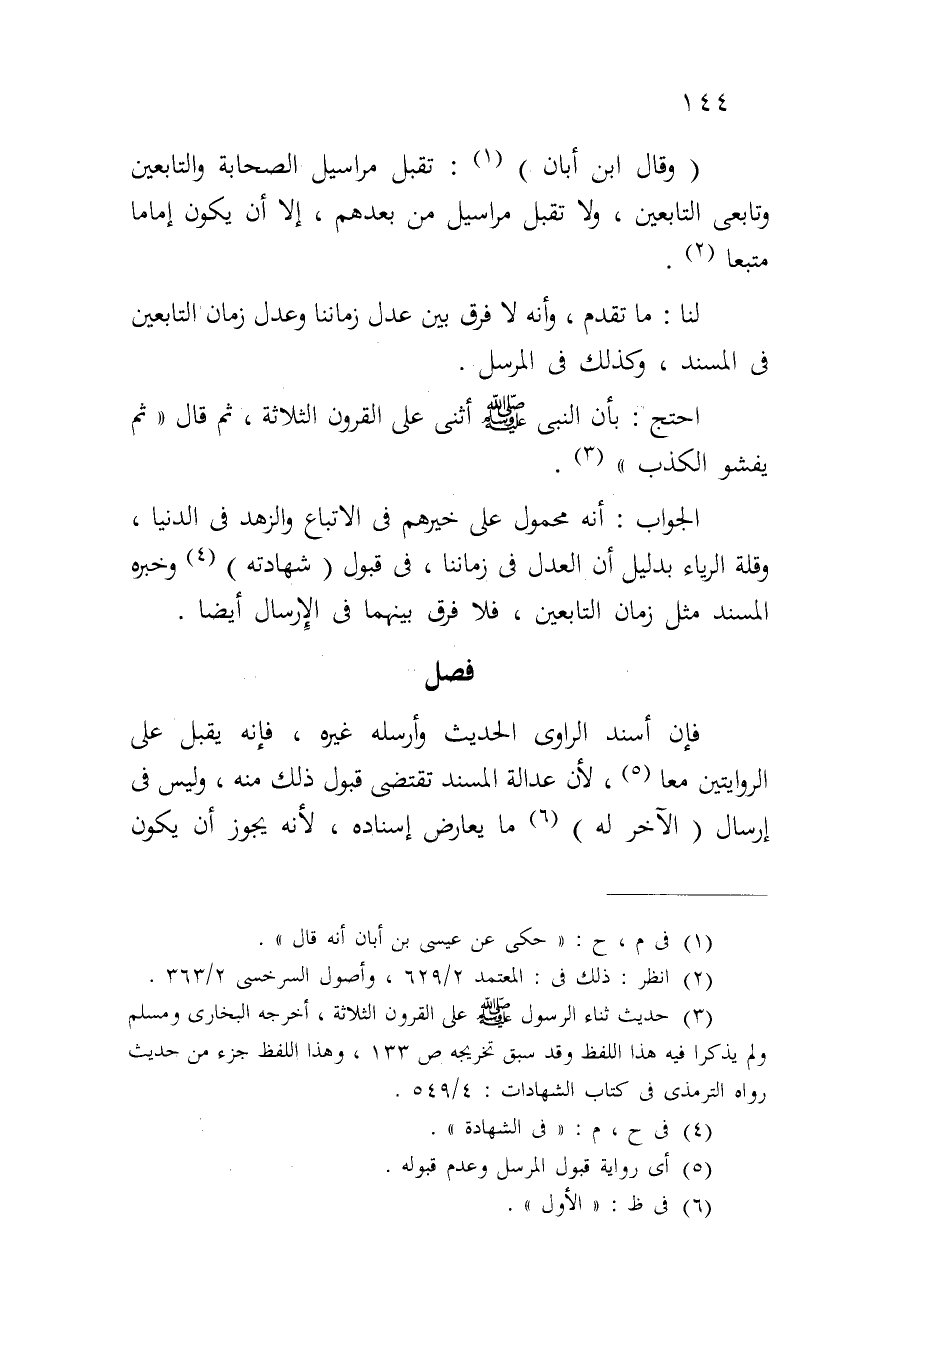 ١٤٤
( وقال ابن أبان ) (١) : تقبل مراسيل الصحابة والتابعين
وتابعى التابعين ، ولا تقبل مراسيل من بعدهم ، إلا أن يكون إماما
متبعا (٢) .
لنا : ما تقدم ، وأنه لا فرق بين عدل زماننا وعدل زمان التابعين
فى المسند ، وكذلك فى المرسل .
احتج : بأن النبى ﷺ أثنى على القرون الثلاثة ، ثم قال « ثم
يفشو الكذب » (٣) .
الجواب : أنه محمول على خيرهم فى الاتباع والزهد فى الدنيا ،
وقلة الرياء بدليل أن العدل فى زماننا ، فى قبول ( شهادته ) (٤) وخبره
المسند مثل زمان التابعين ، فلا فرق بينهما فى الإرسال أيضا .
فصل
فإن أسند الراوى الحديث وأرسله غيره ، فإنه يقبل على
الروايتين معا (٥) ، لأن عدالة المسند تقتضى قبول ذلك منه ، وليس فى
إرسال ( الآخر له ) (٦) ما يعارض إسناده ، لأنه يجوز أن يكون
(١) فى م ، ح : « حكى عن عيسى بن أبان أنه قال » .
(٢) انظر : ذلك فى : المعتمد ٦٢٩/٢ ، وأصول السرخسى ٣٦٣/٢ .
(٣) حديث ثناء الرسول ﷺ على القرون الثلاثة ، أخرجه البخارى ومسلم
ولم يذكرا فيه هذا اللفظ وقد سبق تخريجه ص ١٣٣ ، وهذا اللفظ جزء من حديث
رواه الترمذى فى كتاب الشهادات : ٥٤٩/٤ .
(٤) فى ح ، م : « فى الشهادة » .
(٥) أى رواية قبول المرسل وعدم قبوله .
(٦) فى ظ : « الأول » .